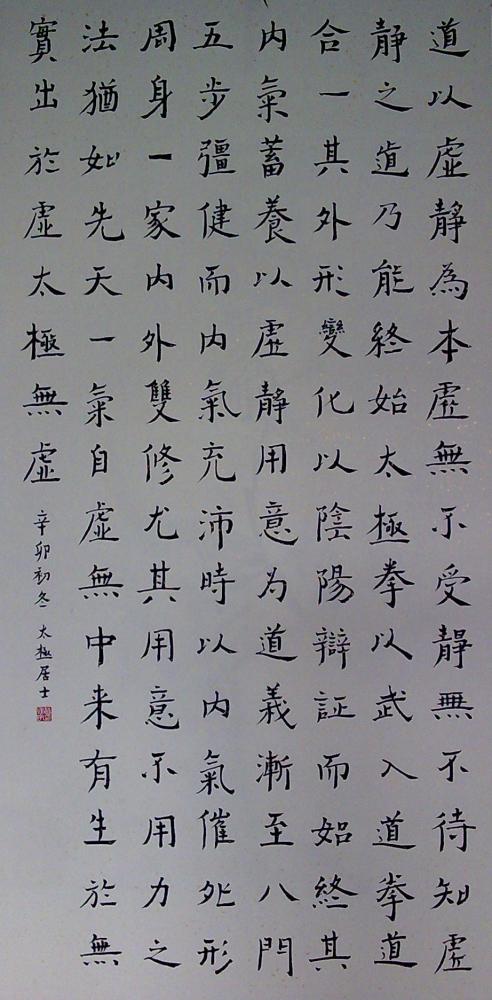 道以虛靜為本虛無不受靜無不待知虛
靜之道乃能終始太極拳以武入道拳道
合一其外形變化以陰陽辯証而始終其
內氣蓄養以虛靜用意为道義漸至八門
五步彊健而內氣充沛時以內氣催外形
周身一家內外雙修尤其用意不用力之
法猶如先天一氣自虛無中来有生於無
實出於虛太極無虛
辛卯初冬 太極居士